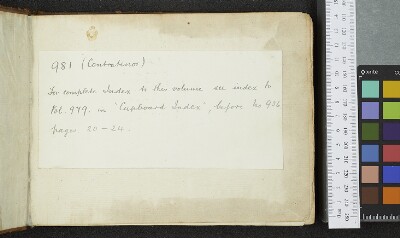 981 (Contratenor)
For complete Index to this volume see index to
Bk. 979. in "Cupboard Index", before No 926
pages 20-24.